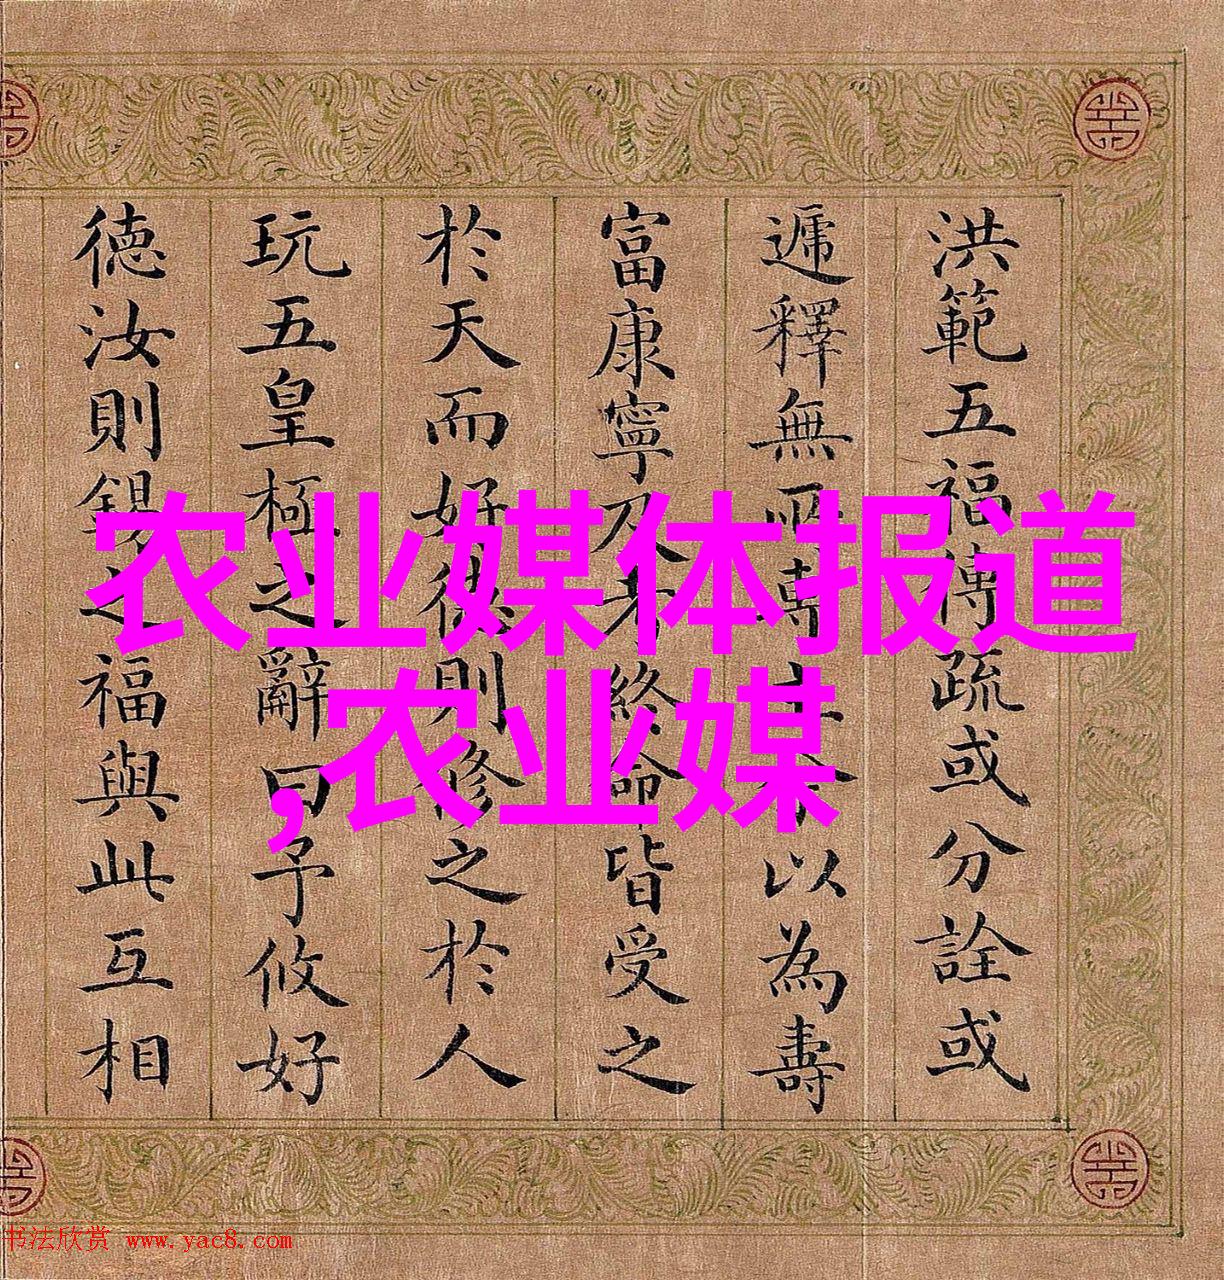 洪範五福傳疏或分詮或
遞釋無所專主今以為壽
富康寧及考終命皆受之
於天而好德則修之於人
玩五皇極之辭曰予攸好
德汝則錫之福與此互相
农业媒体报道
,农业媒
书法欣赏 www.yac8.com